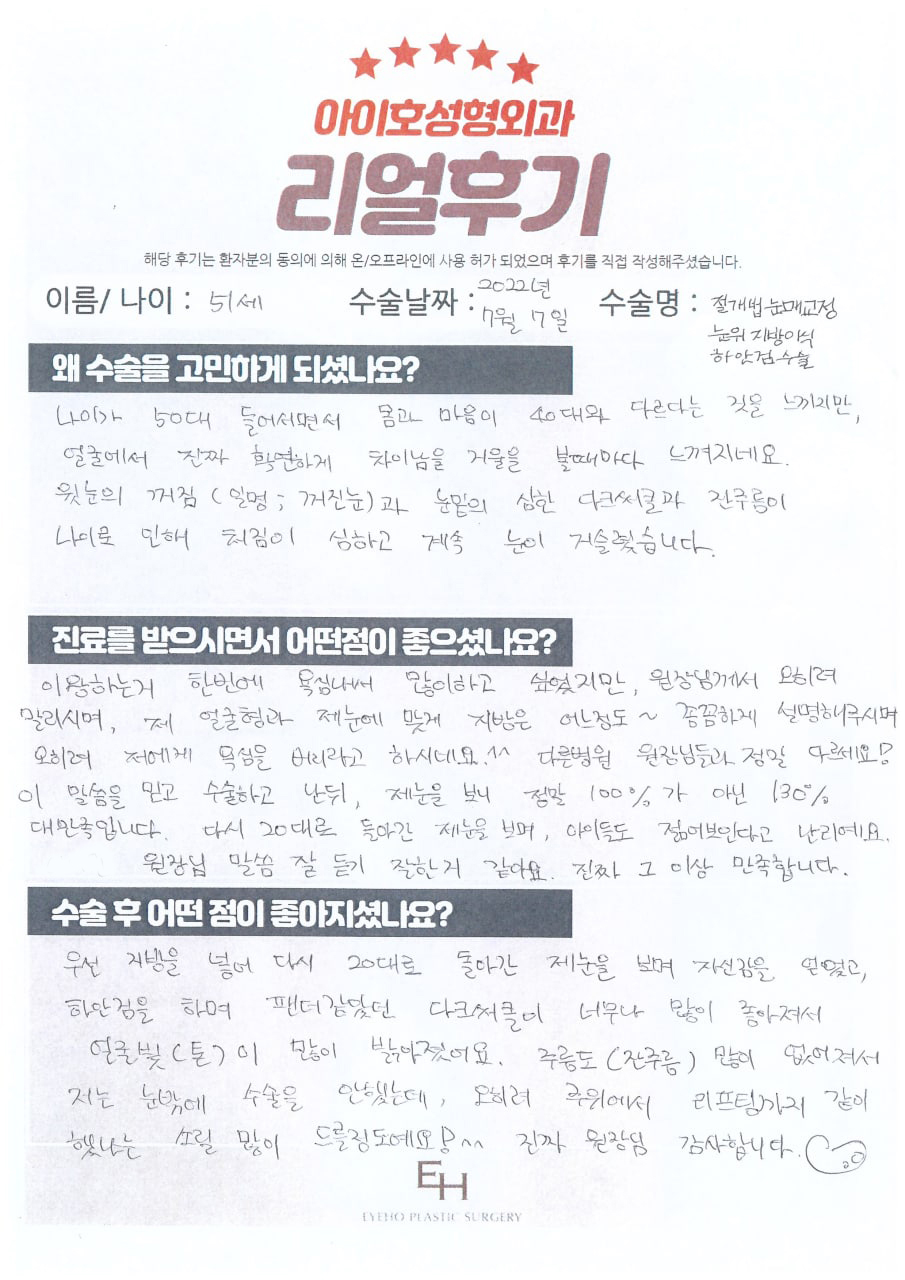 아이호성형외과
리얼후기
해당 후기는 환자분의 동의에 의해 온/오프라인에 사용 허가 되었으며 후기를 직접 작성해주셨습니다.
이름/ 나이 : 51세 수술날짜 : 2022년 7월 7일 수술명 : 절개법눈매교정 눈위 지방이식 하안검수술
왜 수술을 고민하게 되셨나요?
나이가 50대 들어서면서 몸과 마음이 40대와 다르다는 것을 느끼지만,
얼굴에서 진짜 확연하게 차이남을 거울을 볼때마다 느껴지네요.
윗눈의 꺼짐 (일명; 꺼진눈)과 눈밑의 심한 다크써클과 잔주름이
나이로 인해 처짐이 심하고 계속 눈이 거슬렸습니다.
진료를 받으시면서 어떤점이 좋으셨나요?
이왕하는거 한번에 욕심내서 많이하고 싶었지만, 원장님께서 오히려
말리시며, 제 얼굴형과 제눈에 맞게 지방은 어느정도~ 꼼꼼하게 설명해주시며
오히려 저에게 욕심을 버리라고 하시네요.^^ 다른병원 원장님들과 정말 다르세요!
이 말씀을 믿고 수술하고 난뒤, 제눈을 보니 정말 100%가 아닌 130%
대만족입니다. 다시 20대로 돌아간 제눈을 보며, 아이들도 젊어보인다고 난리예요.
원장님 말씀 잘 듣기 잘한거 같아요. 진짜 그 이상 만족합니다.
수술 후 어떤 점이 좋아지셨나요?
우선 지방을 넣어 다시 20대로 돌아간 제눈을 보며 자신감을 얻었고,
하안검을 하며 팬더같았던 다크써클이 너무나 많이 좋아져서
얼굴빛(톤)이 많이 밝아졌어요. 주름도(잔주름) 많이 없어져서
저는 눈밖에 수술을 안했는데, 오히려 주위에서 리프팅까지 같이
했냐는 소릴 많이 드를정도예요!^^ 진짜 원장님 감사합니다.
EH
EYEHO PLASTIC SURGERY